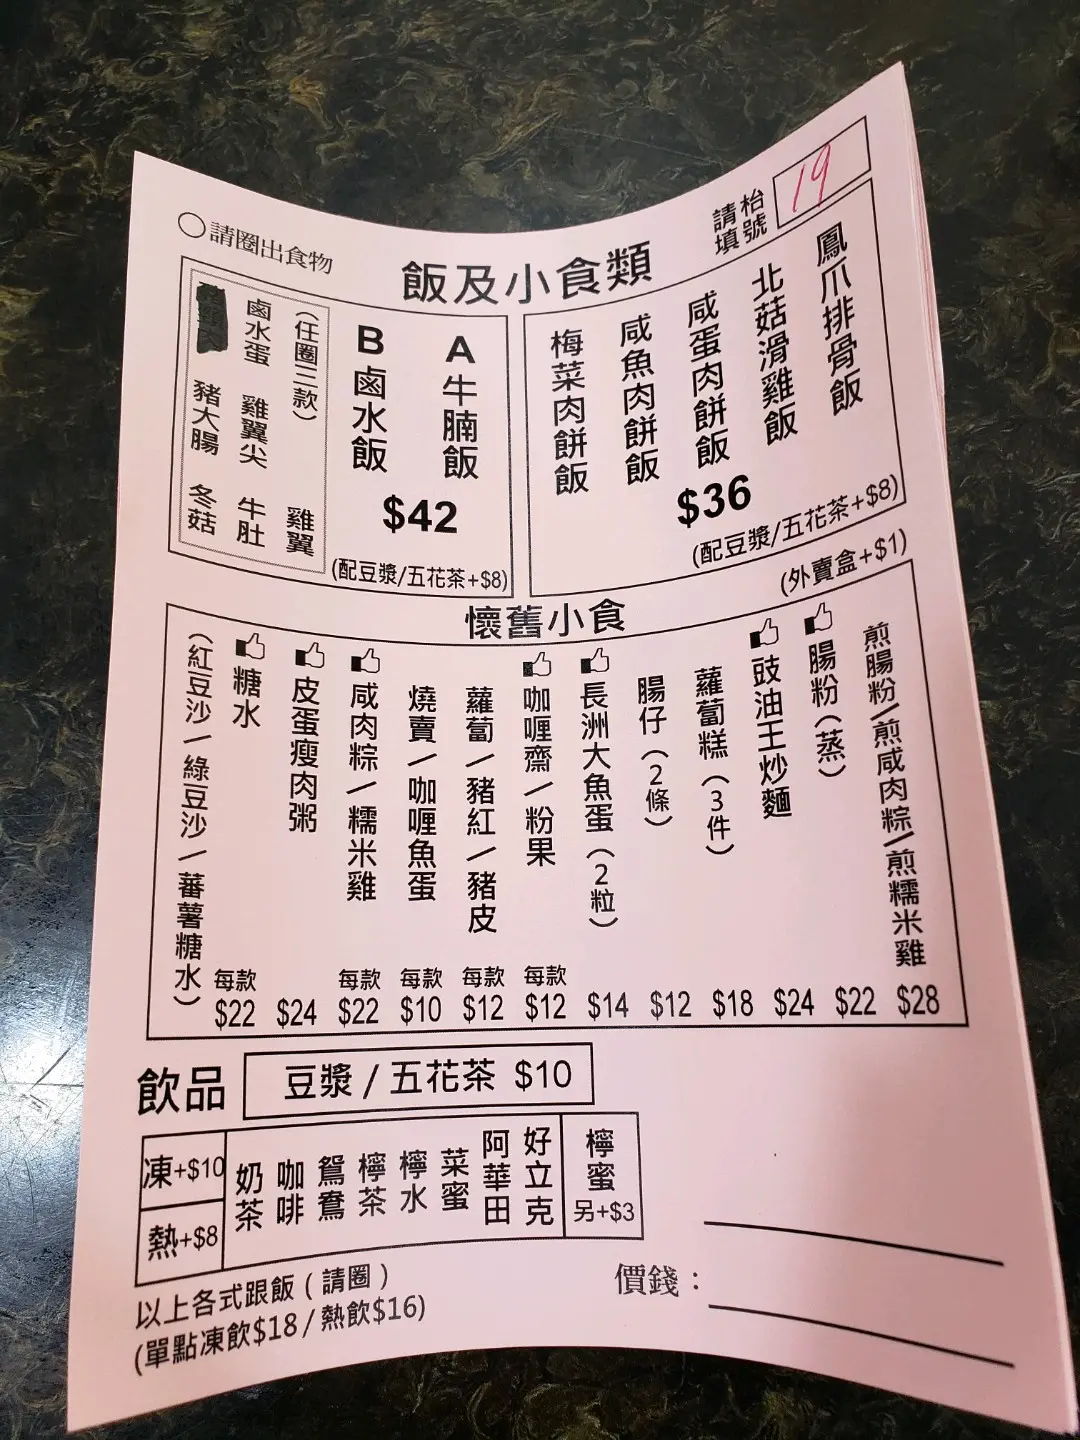 請填枱號
19
○請圈出食物
飯及小食類
鳳爪排骨飯
北菇滑雞飯
咸蛋肉餅飯
咸魚肉餅飯
梅菜肉餅飯
$36
(配豆漿/五花茶+$8)
A 牛腩飯
B 鹵水飯
$42
(配豆漿/五花茶+$8)
(任圈二款)
雞翼
鹵水蛋 雞翼尖 牛肚
豬大腸 冬菇
(外賣盒+$1)
懷舊小食
煎腸粉/煎咸肉粽/煎糯米雞 $28
腸粉(蒸) $22
豉油王炒麵 $24
蘿蔔糕(3件) $18
腸仔(2條) $12
長洲大魚蛋(2粒) $14
咖喱齋/粉果 每款 $12
蘿蔔/豬紅/豬皮 每款 $12
燒賣/咖喱魚蛋 每款 $10
咸肉粽/糯米雞 每款 $22
皮蛋瘦肉粥 $24
糖水 每款 $22
(紅豆沙/綠豆沙/蕃薯糖水)
飲品
豆漿/五花茶 $10
凍+$10
熱+$8
奶茶
咖啡
鴛鴦
檸茶
檸水
菜蜜
阿華田
好立克
檸蜜
另+$3
以上各式跟飯(請圈)
(單點凍飲$18/熱飲$16)
價錢：